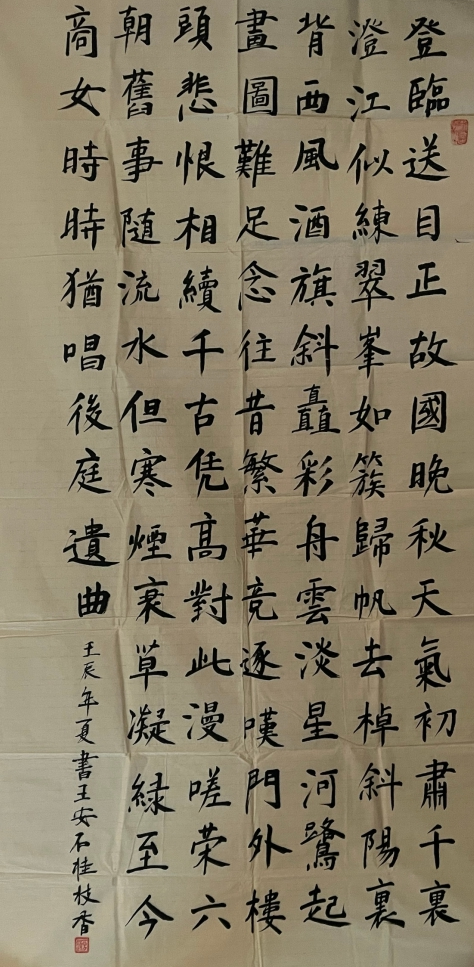 登臨送目正故國晚秋天氣初肅千裏
澄江似練翠峯如簇歸帆去棹斜陽裏
背西風酒旗斜矗彩舟雲淡星河鷺起
畫圖難足念往昔繁華竞逐嘆門外樓
頭悲恨相續千古凭高對此漫嗟荣六
朝舊事随流水但寒煙衰草凝緑至今
商女時時猶唱後庭遺曲
壬辰年夏書王安石桂枝香